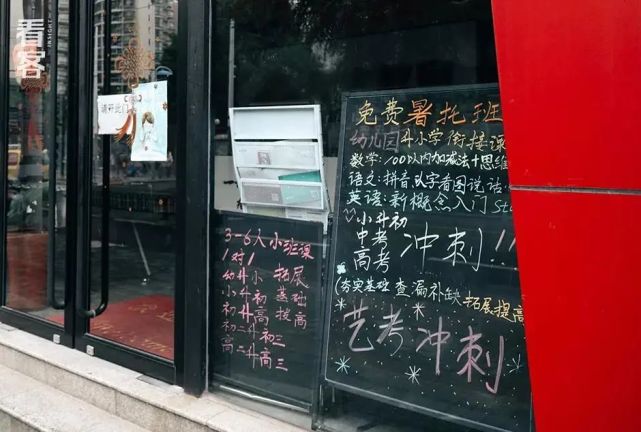 看客
INSIGHT
请开此门
免费暑托班
幼儿园升小学衔接课
数学:100以内加减法+思维
语文:拼音识字看图说话
英语:新概念入门St
小升初
中考
高考
冲刺!!
(夯实基础 查漏补缺 拓展提高
艺考冲刺
3-6人小班课
1对1
幼升小 拓展
小升初 基础
初升高 提高
初二升初三
高二升高三